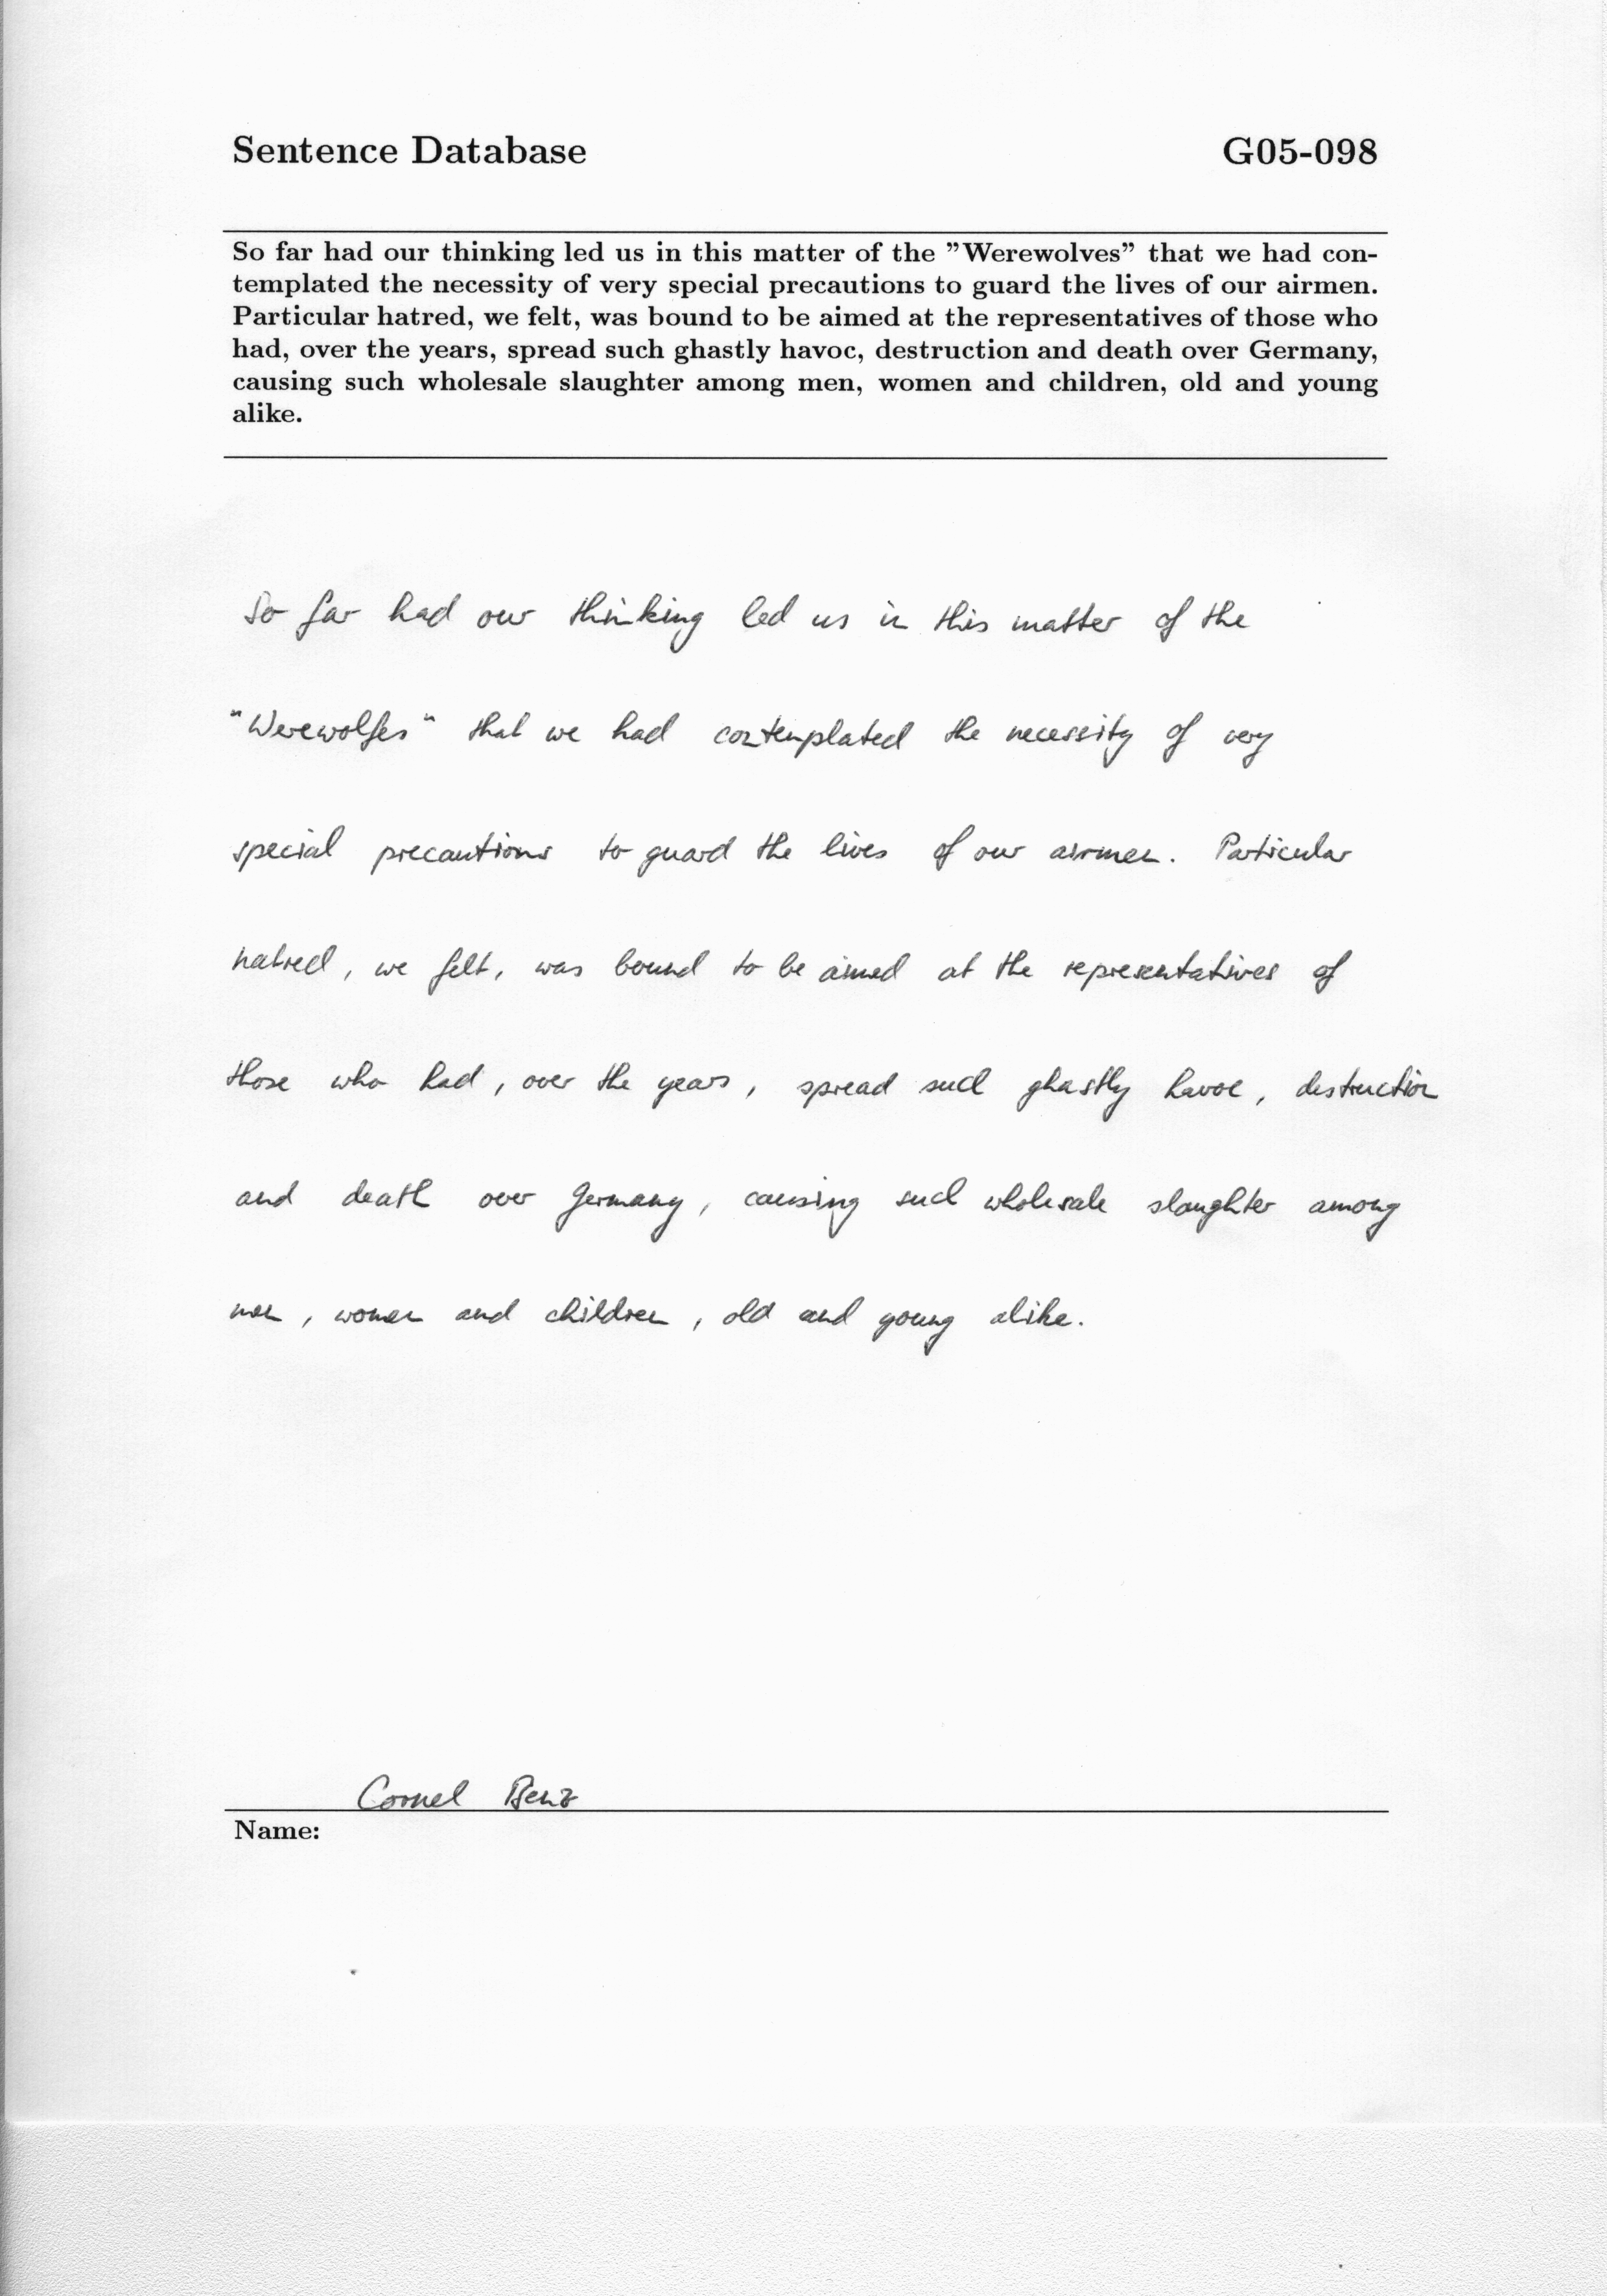 Sentence Database G05-098
So far had our thinking led us in this matter of the ”Werewolves” that we had con-
templated the necessity of very special precautions to guard the lives of our airmen.
Particular hatred, we felt, was bound to be aimed at the representatives of those who
had, over the years, spread such ghastly havoc, destruction and death over Germany,
causing such wholesale slaughter among men, women and children, old and young
alike.
So far had our thinking led us in this matter of the
"Werewolfes" that we had contemplated the necessity of very
special precautions to guard the lives of our airmen. Particular
hatred, we felt, was bound to be aimed at the representatives of
those who had, over the years, spread such ghastly havoc, destruction
and death over Germany, causing such wholesale slaughter among
men, women and children, old and young alike.
Cornel Benz
Name: